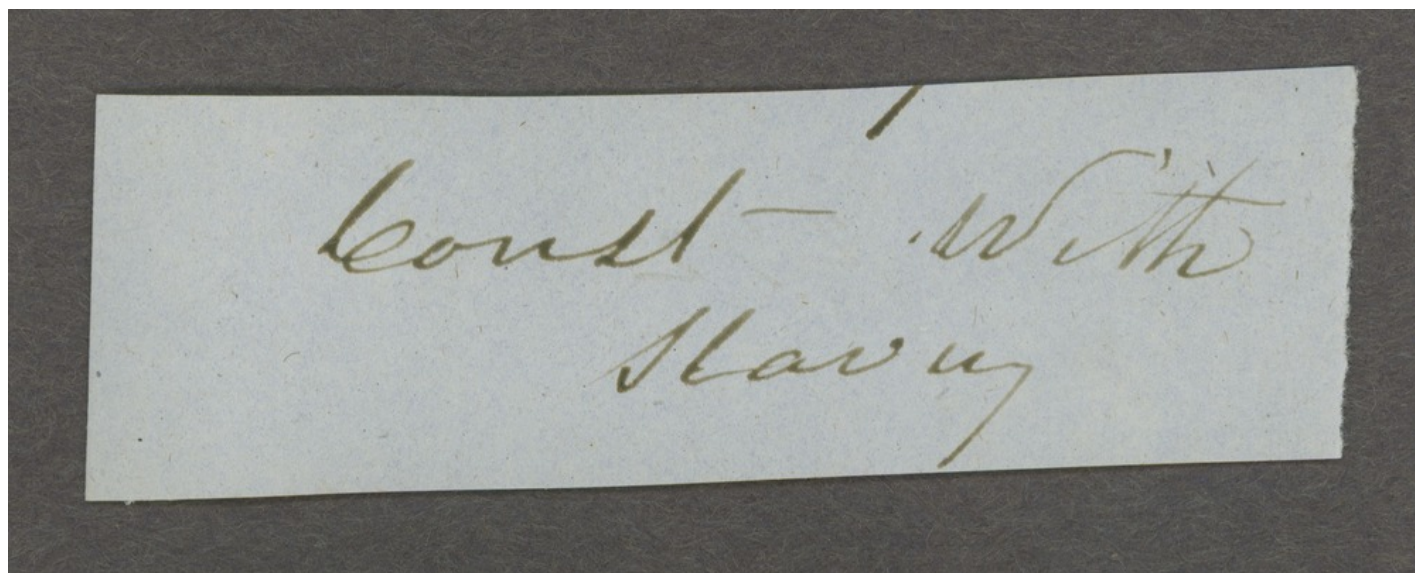 Const - With
Slavery